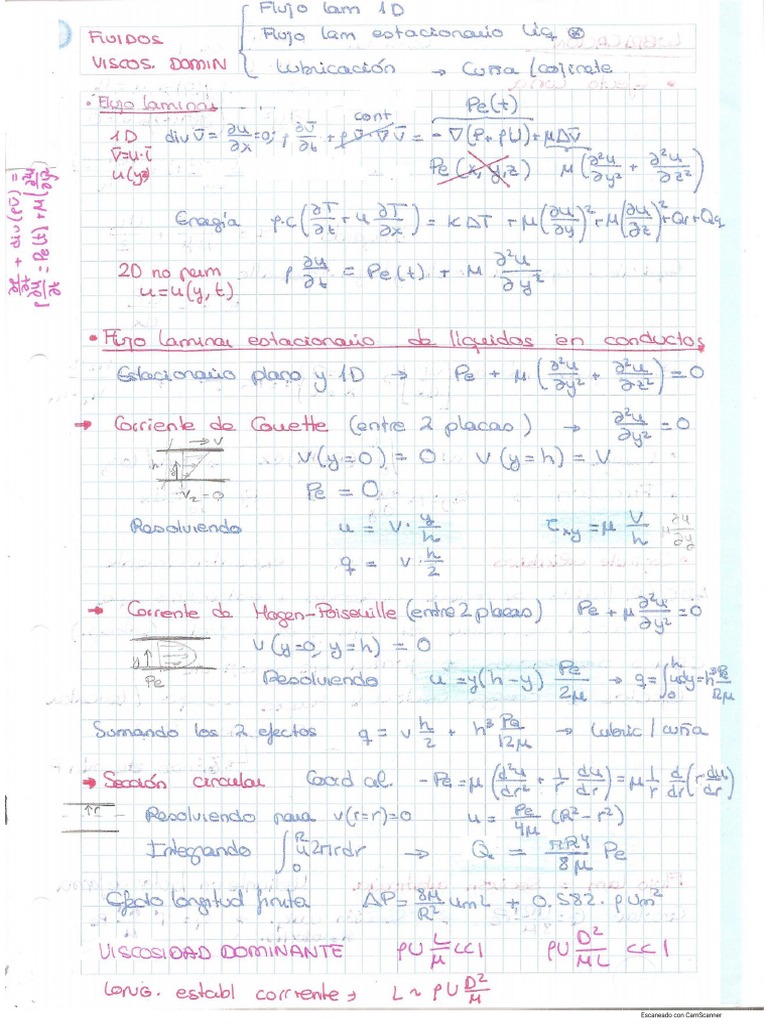 FLUIDOS
VISCOS. DOMIN
Flujo lam 1D
Flujo lam estacionario Liq
Lubricación → Cuña/cojinete
• Flujo laminar
1D
v̄=u·ī
u(yz)
div v̄ = ∂u/∂x = 0; ρ ∂v̄/∂t + ρ v̄·∇v̄ = -∇(P+ρU) + μΔv̄
cont
Pe(t)
Pe(x,y,z) μ(∂²u/∂y² + ∂²u/∂z²)
Energía ρ·c(∂T/∂t + u ∂T/∂x) = KΔT + μ(∂u/∂y)² + μ(∂u/∂z)² + Qr + Qq
2D no perm
u=u(y,t)
ρ ∂u/∂t = Pe(t) + μ · ∂²u/∂y²
• Flujo laminar estacionario de líquidos en conductos
Estacionario plano y 1D → Pe + μ(∂²u/∂y² + ∂²u/∂z²) = 0
→ Corriente de Couette (entre 2 placas) → ∂²u/∂y² = 0
→ V
h
V₂=0
V(y=0) = 0 V(y=h) = V
Pe = 0
Resolviendo u = V · y/h τxy = μ V/h μ ∂u/∂y
q = V · h/2
→ Corriente de Hagen-Poiseuille (entre 2 placas) Pe + μ ∂²u/∂y² = 0
y
Pe
V(y=0, y=h) = 0
Resolviendo u = y(h-y) Pe/2μ → q = ∫₀ʰ u dy = h³ Pe/12μ
Sumando los 2 efectos q = v h/2 + h³ Pe/12μ → Lubric/cuña
→ Sección circular Coord cil. -Pe = μ(d²u/dr² + 1/r du/dr) = μ 1/r d/dr (r du/dr)
↑r
Resolviendo para v(r=r)=0 u = Pe/4μ (R²-r²)
Integrando ∫₀ᴿ u2πrdr → Q = πR⁴/8μ Pe
Efecto longitud finita ΔP = 8μ/R² um L + 0.582 · ρUm²
VISCOSIDAD DOMINANTE ρU L/μ <<1 ρU D²/μL <<1
LONG. establ corriente → L ~ ρU D²/μ
Escaneado con CamScanner